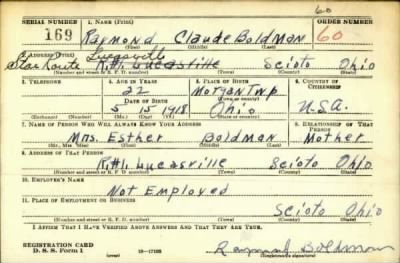 60
SERIAL NUMBER 1. NAME (Print) ORDER NUMBER
169 Raymond Claude Boldman 60
(First) (Middle) (Last)
2. ADDRESS (Print) Lucasville
Star Route R#1 Lucasville Scioto Ohio
(Number and street or R. F. D. number) (Town) (County) (State)
3. TELEPHONE 4. AGE IN YEARS 5. PLACE OF BIRTH 6. COUNTRY OF CITIZENSHIP
22 Morgan Twp
DATE OF BIRTH (Town or county)
5 15 1918 Ohio U.S.A.
(Mo.) (Day) (Yr.) (State or country)
7. NAME OF PERSON WHO WILL ALWAYS KNOW YOUR ADDRESS 8. RELATIONSHIP OF THAT PERSON
Mrs. Esther Boldman Mother
(Mr., Mrs., Miss) (First) (Middle) (Last)
9. ADDRESS OF THAT PERSON
R#1 Lucasville Scioto Ohio
(Number and street or R. F. D. number) (Town) (County) (State)
10. EMPLOYER'S NAME
Not Employed
11. PLACE OF EMPLOYMENT OR BUSINESS
Scioto Ohio
(Number and street or R. F. D. number) (Town) (County) (State)
I AFFIRM THAT I HAVE VERIFIED ABOVE ANSWERS AND THAT THEY ARE TRUE.
REGISTRATION CARD
D. S. S. Form 1 Raymond Boldman
(Registrant's signature)